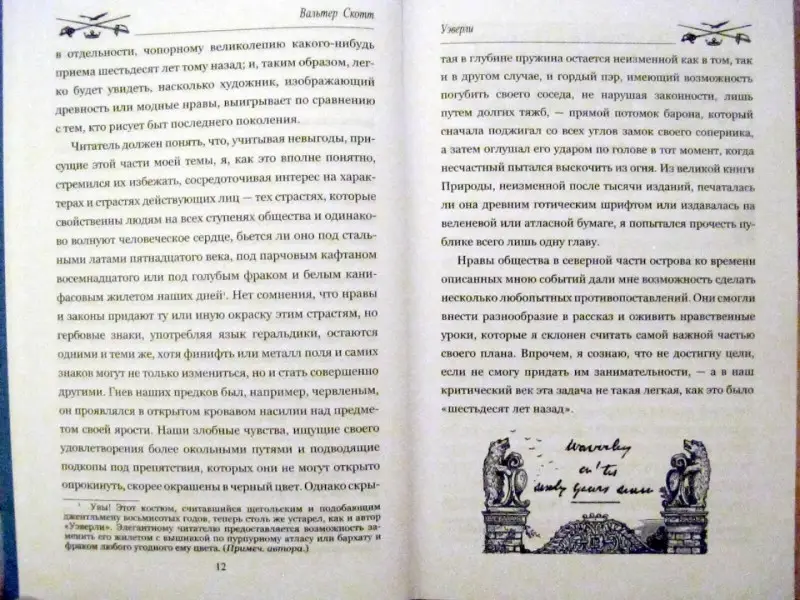 Вальтер Скотт
в отдельности, чопорному великолепию какого-нибудь
приема шестьдесят лет тому назад; и, таким образом, лег-
ко будет увидеть, насколько художник, изображающий
древность или модные нравы, выигрывает по сравнению
с тем, кто рисует быт последнего поколения.
Читатель должен понять, что, учитывая невыгоды, при-
сущие этой части моей темы, я, как это вполне понятно,
стремился их избежать, сосредоточивая интерес на харак-
терах и страстях действующих лиц — тех страстях, которые
свойственны людям на всех ступенях общества и одинако-
во волнуют человеческое сердце, бьется ли оно под сталь-
ными латами пятнадцатого века, под парчовым кафтаном
восемнадцатого или под голубым фраком и белым кани-
фасовым жилетом наших дней¹. Нет сомнения, что нравы
и законы придают ту или иную окраску этим страстям, но
гербовые знаки, употребляя язык геральдики, остаются
одними и теми же, хотя финифть или металл поля и самих
знаков могут не только измениться, но и стать совершенно
другими. Гнев наших предков был, например, червленым,
он проявлялся в открытом кровавом насилии над предме-
том своей ярости. Наши злобные чувства, ищущие своего
удовлетворения более окольными путями и подводящие
подкопы под препятствия, которых они не могут открыто
опрокинуть, скорее окрашены в черный цвет. Однако скры-
¹ Увы! Этот костюм, считавшийся щегольским и подобающим
джентльмену восьмисотых годов, теперь столь же устарел, как и автор
«Уэверли». Элегантному читателю предоставляется возможность за-
менить его жилетом с вышивкой по пурпурному атласу или бархату и
фраком любого угодного ему цвета. (Примеч. автора.)
12
Уэверли
тая в глубине пружина остается неизменной как в том, так
и в другом случае, и гордый пэр, имеющий возможность
погубить своего соседа, не нарушая законности, лишь
путем долгих тяжб, — прямой потомок барона, который
сначала поджигал со всех углов замок своего соперника,
а затем оглушал его ударом по голове в тот момент, когда
несчастный пытался выскочить из огня. Из великой книги
Природы, неизменной после тысячи изданий, печаталась
ли она древним готическим шрифтом или издавалась на
веленевой или атласной бумаге, я попытался прочесть пу-
блике всего лишь одну главу.
Нравы общества в северной части острова ко времени
описанных мною событий дали мне возможность сделать
несколько любопытных противопоставлений. Они смогли
внести разнообразие в рассказ и оживить нравственные
уроки, которые я склонен считать самой важной частью
своего плана. Впрочем, я сознаю, что не достигну цели,
если не смогу придать им занимательности, — а в наш
критический век эта задача не такая легкая, как это было
«шестьдесят лет назад».
Waverley
or 'tis
years since